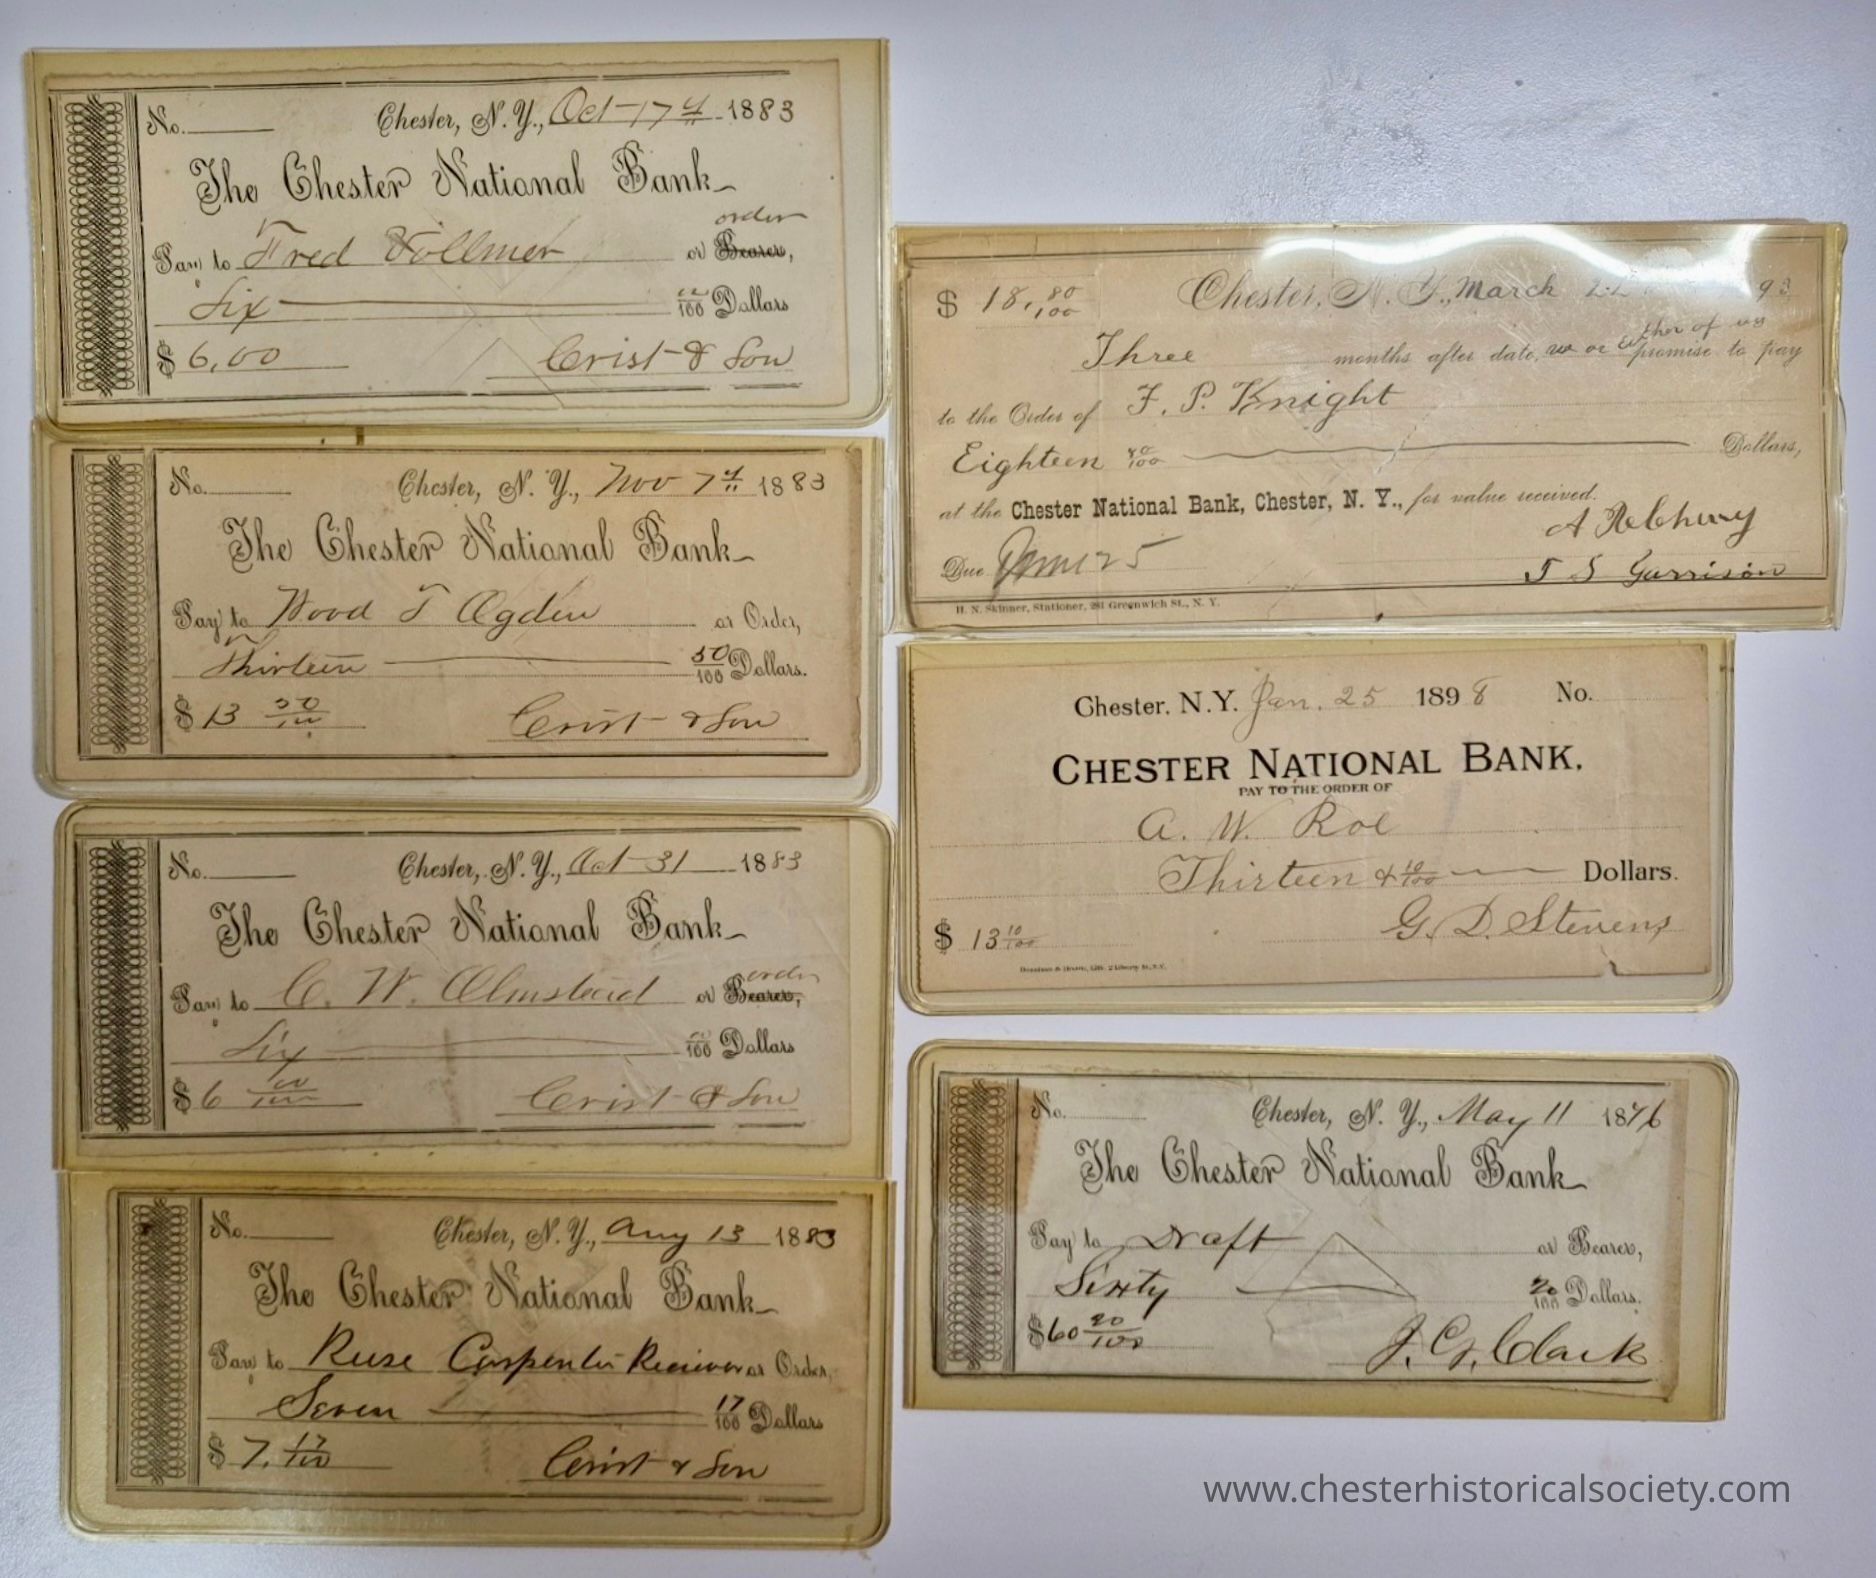 No. Chester, N. Y., Oct 17th 1883
The Chester National Bank
order
Pay to Fred Vollmer or Bearer,
Six 00/100 Dollars
$ 6,00 Crist & Son
No. Chester, N. Y., Nov 7th 1883
The Chester National Bank
Pay to Wood T Ogden or Order,
Thirteen 50/100 Dollars.
$ 13 50/100 Crist & Son
No. Chester, N. Y., Oct 31 1883
The Chester National Bank
order
Pay to C. W. Olmstead or Bearer,
Six 00/100 Dollars
$ 6 00/100 Crist & Son
No. Chester, N. Y., Aug 13 1883
The Chester National Bank
Pay to Reese Carpenter Reciever or Order,
Seven 17/100 Dollars
$ 7. 17/100 Crist & Son
$ 18, 80/100 Chester, N. Y., March 93
ther of us
Three months after date, we or Ei promise to pay
to the Order of F. P. Knight
Eighteen 80/100 Dollars,
at the Chester National Bank, Chester, N. Y., for value received.
A
Due 25 T S Garrison
H. N. Skinner, Stationer, 281 Greenwich St., N. Y.
Chester. N.Y. Jan. 25 1898 No.
CHESTER NATIONAL BANK.
PAY TO THE ORDER OF
A. W. Roe
Thirteen & 10/100 Dollars.
G. D. Stevens
$ 13 10/100
No. Chester, N. Y., May 11 1876
The Chester National Bank
Pay to Draft or Bearer,
Sixty 20/100 Dollars.
$60 20/100 J. G. Clark
www.chesterhistoricalsociety.com